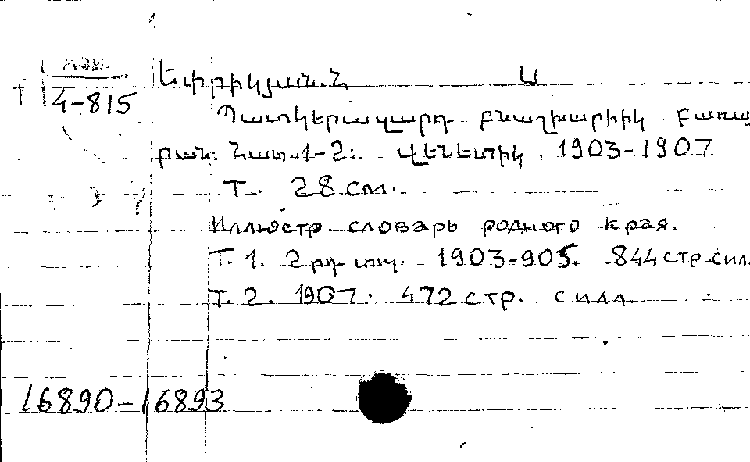 Арм.
4-815
Եփրիկյան Ն Ս
Պատկերազարդ բնաշխարհիկ բառա
րան. Հատ. 1-2. Վենետիկ, 1903-1907
Т. 28 см.
Иллюстр словарь родного края.
Т. 1. 2րդ տպ. 1903-905. 844 стр. с ил.
Т. 2. 1907. 472 стр. с илл
16890-16893